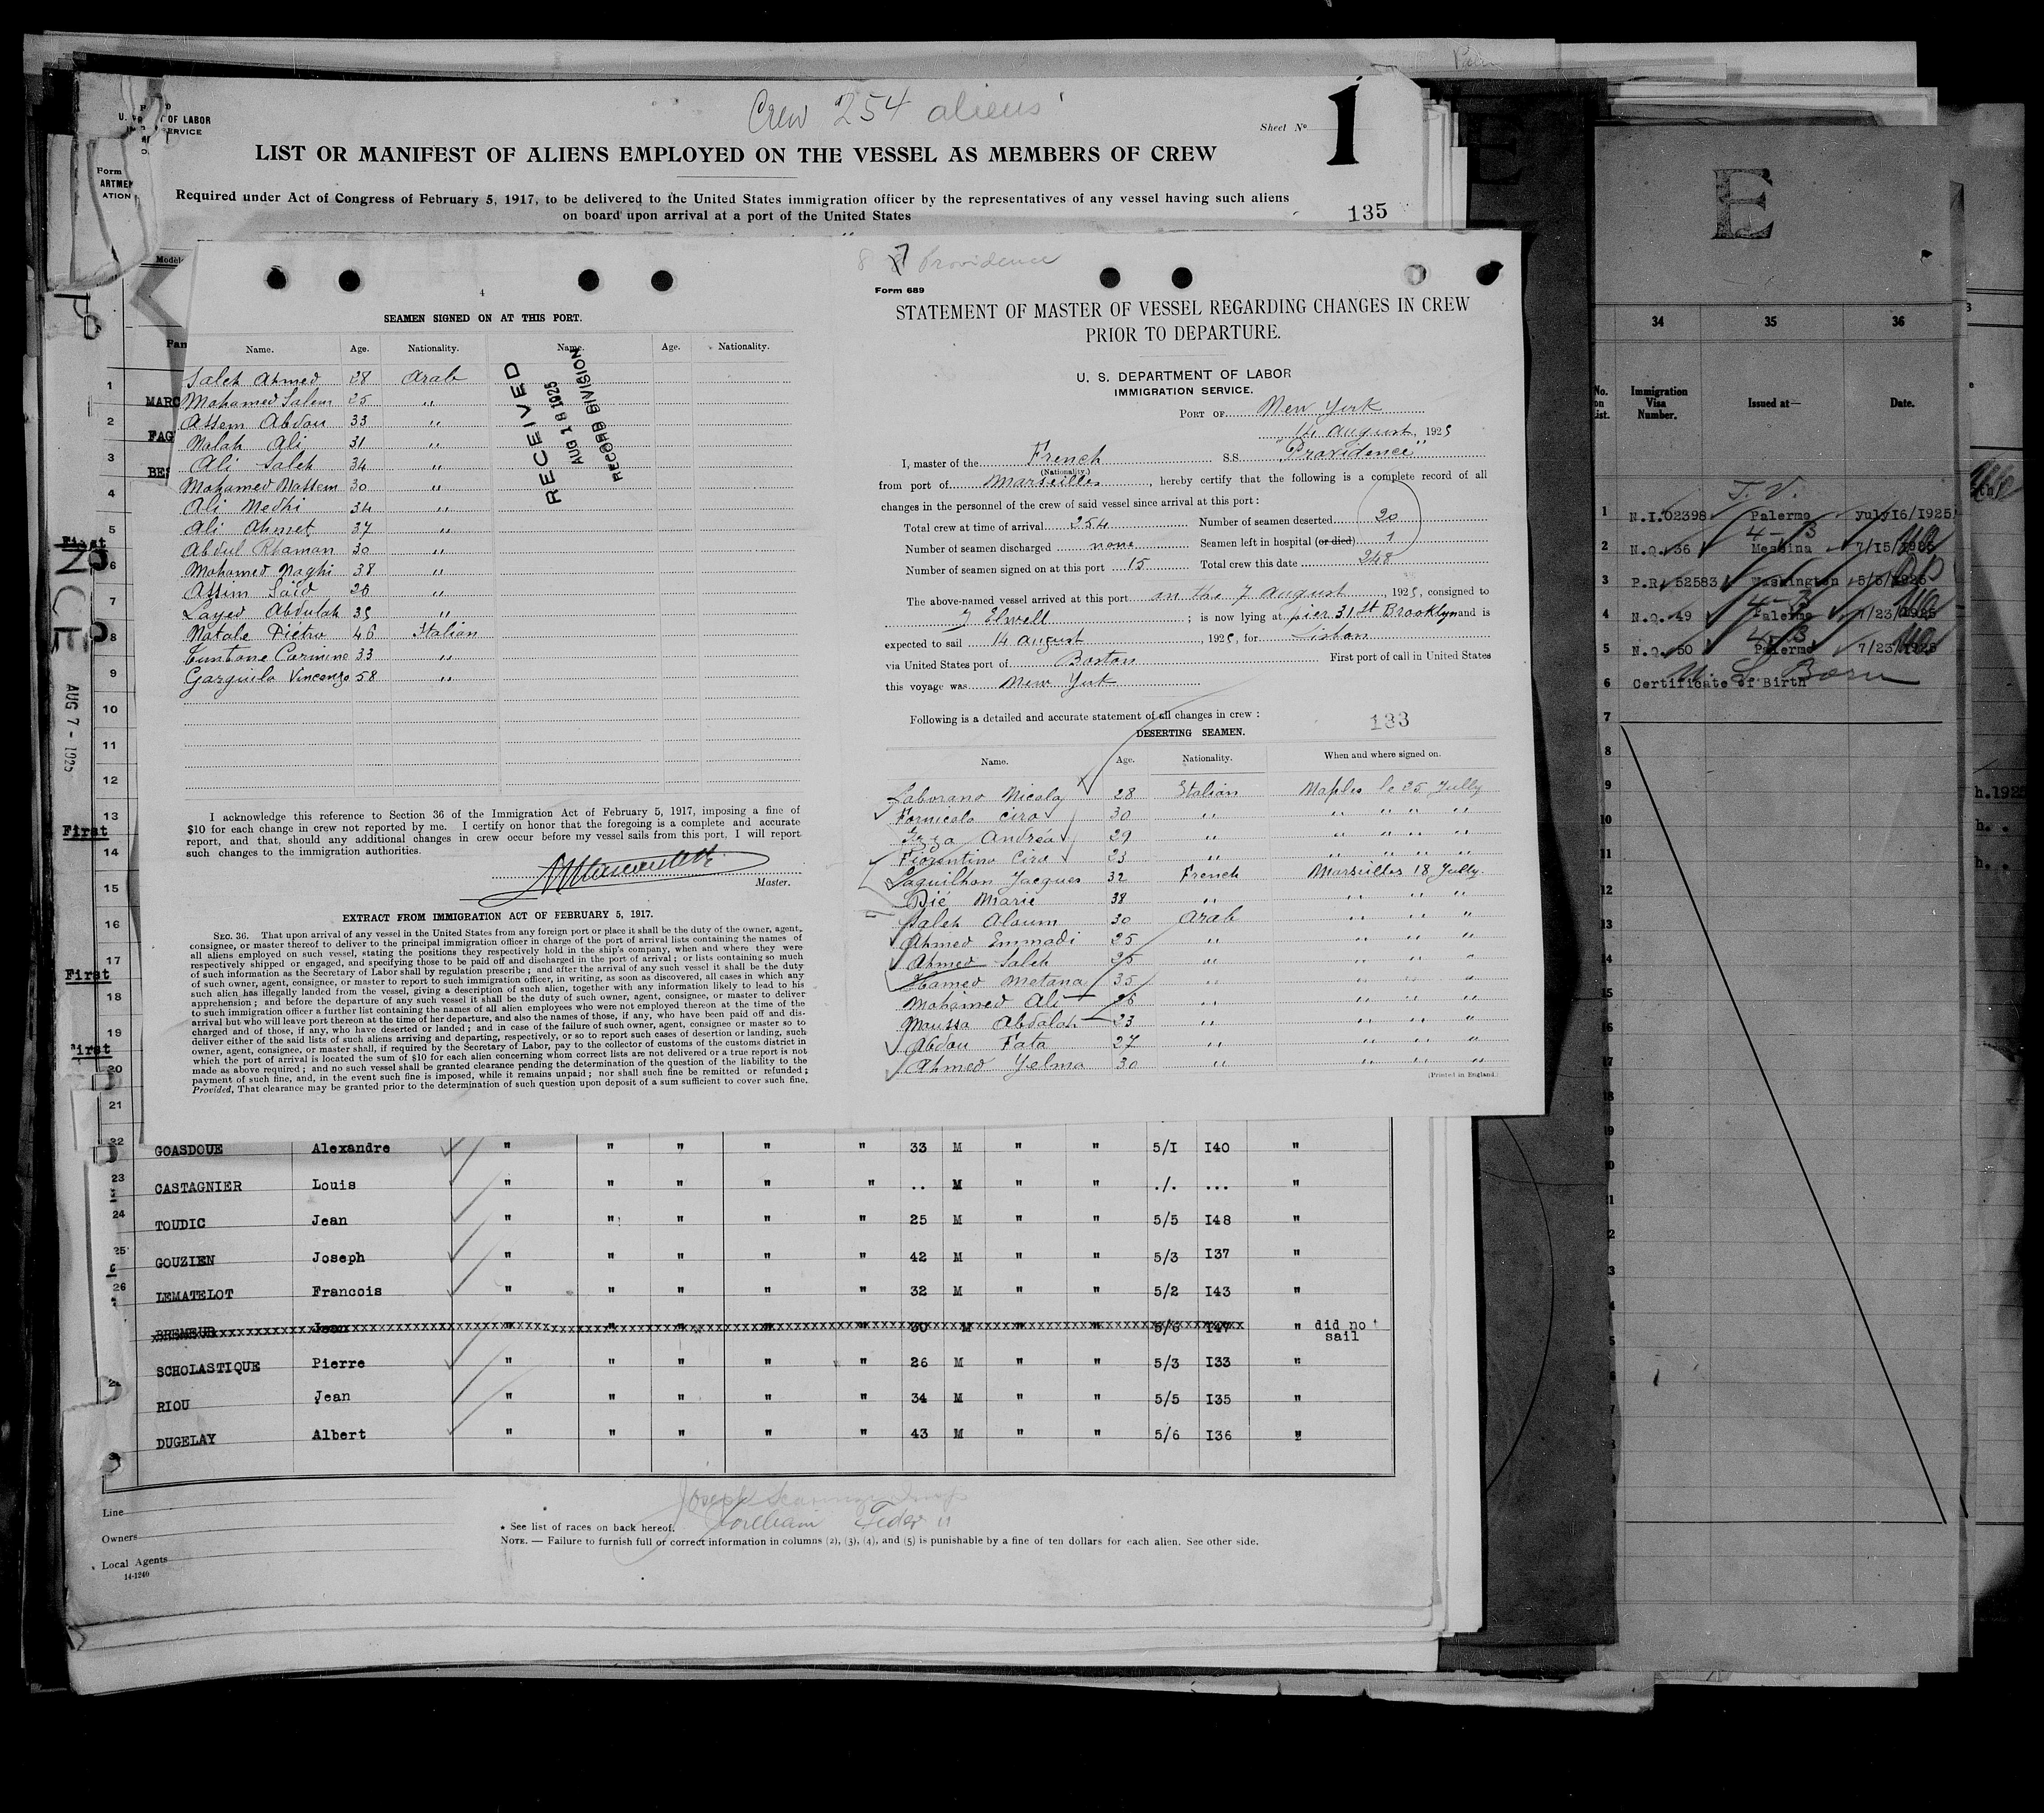 Crew 254 aliens
Sheet No
1
U. S. OF LABOR
SERVICE
Form
LIST OR MANIFEST OF ALIENS EMPLOYED ON THE VESSEL AS MEMBERS OF CREW
Required under Act of Congress of February 5, 1917, to be delivered to the United States immigration officer by the representatives of any vessel having such aliens
on board upon arrival at a port of the United States
135
4
SEAMEN SIGNED ON AT THIS PORT.
Name. Age. Nationality. Name. Age. Nationality.
Saleh Ahmed 28 Arab
Mohamed Salem 25 "
Assem Abdou 33 "
Malah Ali 31 "
Ali Saleh 34 "
Mohamed Nassem 30 "
Ali Medhi 34 "
Ali Ahmet 37 "
Abdul Rhaman 30 "
Mohamed Naghi 38 "
Assim Saïd 26 "
Layed Abdulah 35 "
Natale Pietro 46 Italian
Carmine 33 "
Garguilo Vincenzo 58 "
RECEIVED
AUG 18 1925
RECORD DIVISION
I acknowledge this reference to Section 36 of the Immigration Act of February 5, 1917, imposing a fine of
$10 for each change in crew not reported by me. I certify on honor that the foregoing is a complete and accurate
report, and that, should any additional changes in crew occur before my vessel sails from this port, I will report
such changes to the immigration authorities.
Master.
EXTRACT FROM IMMIGRATION ACT OF FEBRUARY 5, 1917.
SEC. 36. That upon arrival of any vessel in the United States from any foreign port or place it shall be the duty of the owner, agent,
consignee, or master thereof to deliver to the principal immigration officer in charge of the port of arrival lists containing the names of
all aliens employed on such vessel, stating the positions they respectively hold in the ship's company, when and where they were
respectively shipped or engaged, and specifying those to be paid off and discharged in the port of arrival; or lists containing so much
of such information as the Secretary of Labor shall by regulation prescribe; and after the arrival of any such vessel it shall be the duty
of such owner, agent, consignee, or master to report to such immigration officer, in writing, as soon as discovered, all cases in which any
such alien has illegally landed from the vessel, giving a description of such alien, together with any information likely to lead to his
apprehension; and before the departure of any such vessel it shall be the duty of such owner, agent, consignee, or master to deliver
to such immigration officer a further list containing the names of all alien employees who were not employed thereon at the time of the
arrival but who will leave port thereon at the time of her departure, and also the names of those, if any, who have been paid off and dis-
charged and of those, if any, who have deserted or landed; and in case of the failure of such owner, agent, consignee or master so to
deliver either of the said lists of such aliens arriving and departing, respectively, or so to report such cases of desertion or landing, such
owner, agent, consignee, or master shall, if required by the Secretary of Labor, pay to the collector of customs of the customs district in
which the port of arrival is located the sum of $10 for each alien concerning whom correct lists are not delivered or a true report is not
made as above required; and no such vessel shall be granted clearance pending the determination of the question of the liability to the
payment of such fine, and, in the event such fine is imposed, while it remains unpaid; nor shall such fine be remitted or refunded;
Provided, That clearance may be granted prior to the determination of such question upon deposit of a sum sufficient to cover such fine.
Providence
Form 689
STATEMENT OF MASTER OF VESSEL REGARDING CHANGES IN CREW
PRIOR TO DEPARTURE.
U. S. DEPARTMENT OF LABOR
IMMIGRATION SERVICE.
PORT OF New York
14 August, 1925
I, master of the French S.S. "Providence"
(Nationality.)
from port of Marseilles, hereby certify that the following is a complete record of all
changes in the personnel of the crew of said vessel since arrival at this port:
Total crew at time of arrival 254 Number of seamen deserted 20
Number of seamen discharged none Seamen left in hospital (or died) 1
Number of seamen signed on at this port 15 Total crew this date 248
The above-named vessel arrived at this port on the 7 August, 1925, consigned to
J Elwell; is now lying at pier 31 St Brooklyn and is
expected to sail 14 August, 1925, for Lisbon
via United States port of Boston First port of call in United States
this voyage was New York
Following is a detailed and accurate statement of all changes in crew:
133
DESERTING SEAMEN.
Name. Age. Nationality. When and where signed on.
Laborano Nicola 28 Italian Naples le 25 Jully
Formicola Ciro 30 " " " "
Izza Andréa 29 " " " "
Fiorentino Ciro 23 " " " "
Laquilhon Jacques 32 French Marseilles 18 Jully
Dié Marie 38 " " " "
Saleh Aloum 30 Arab " " "
Ahmed Emmadi 25 " " " "
Ahmed Saleh 25 " " " "
Hamed Metana 35 " " " "
Mohamed Ali 26 " " " "
Moussa Abdalah 23 " " " "
Abdou Fata 27 " " " "
Ahmed Yelma 30 " " " "
(Printed in England.)
GOASDOUE Alexandre " " " " " 33 M " " 5/1 140 "
23 CASTAGNIER Louis " " " " " .. M " " ./. ... "
24 TOUDIC Jean " " " " " 25 M " " 5/5 148 "
25 GOUZIEN Joseph " " " " " 42 M " " 5/3 137 "
26 LEMATELOT Francois " " " " " 32 M " " 5/2 143 "
BREMEUR Jean " " " " " 30 M " " 5/6 147 " did not
sail
SCHOLASTIQUE Pierre " " " " " 26 M " " 5/3 133 "
RIOU Jean " " " " " 34 M " " 5/5 135 "
DUGELAY Albert " " " " " 43 M " " 5/6 136 "
Line
Owners
Local Agents
14-1240
* See list of races on back hereof.
NOTE. — Failure to furnish full or correct information in columns (2), (3), (4), and (5) is punishable by a fine of ten dollars for each alien. See other side.
AUG 7 - 1925
E
34 35 36
No. on List. Immigration Visa Number. Issued at— Date.
1 N.I.02398 Palermo July 16/1925
2 N.Q. 36 Messina 7/15/1925
3 P.R. 52583 Washington 5/5/1925
4 N.Q. 49 Palermo 7/23/1925
5 N.Q. 50 Palermo 7/23/1925
6 Certificate of Birth U. S. Born